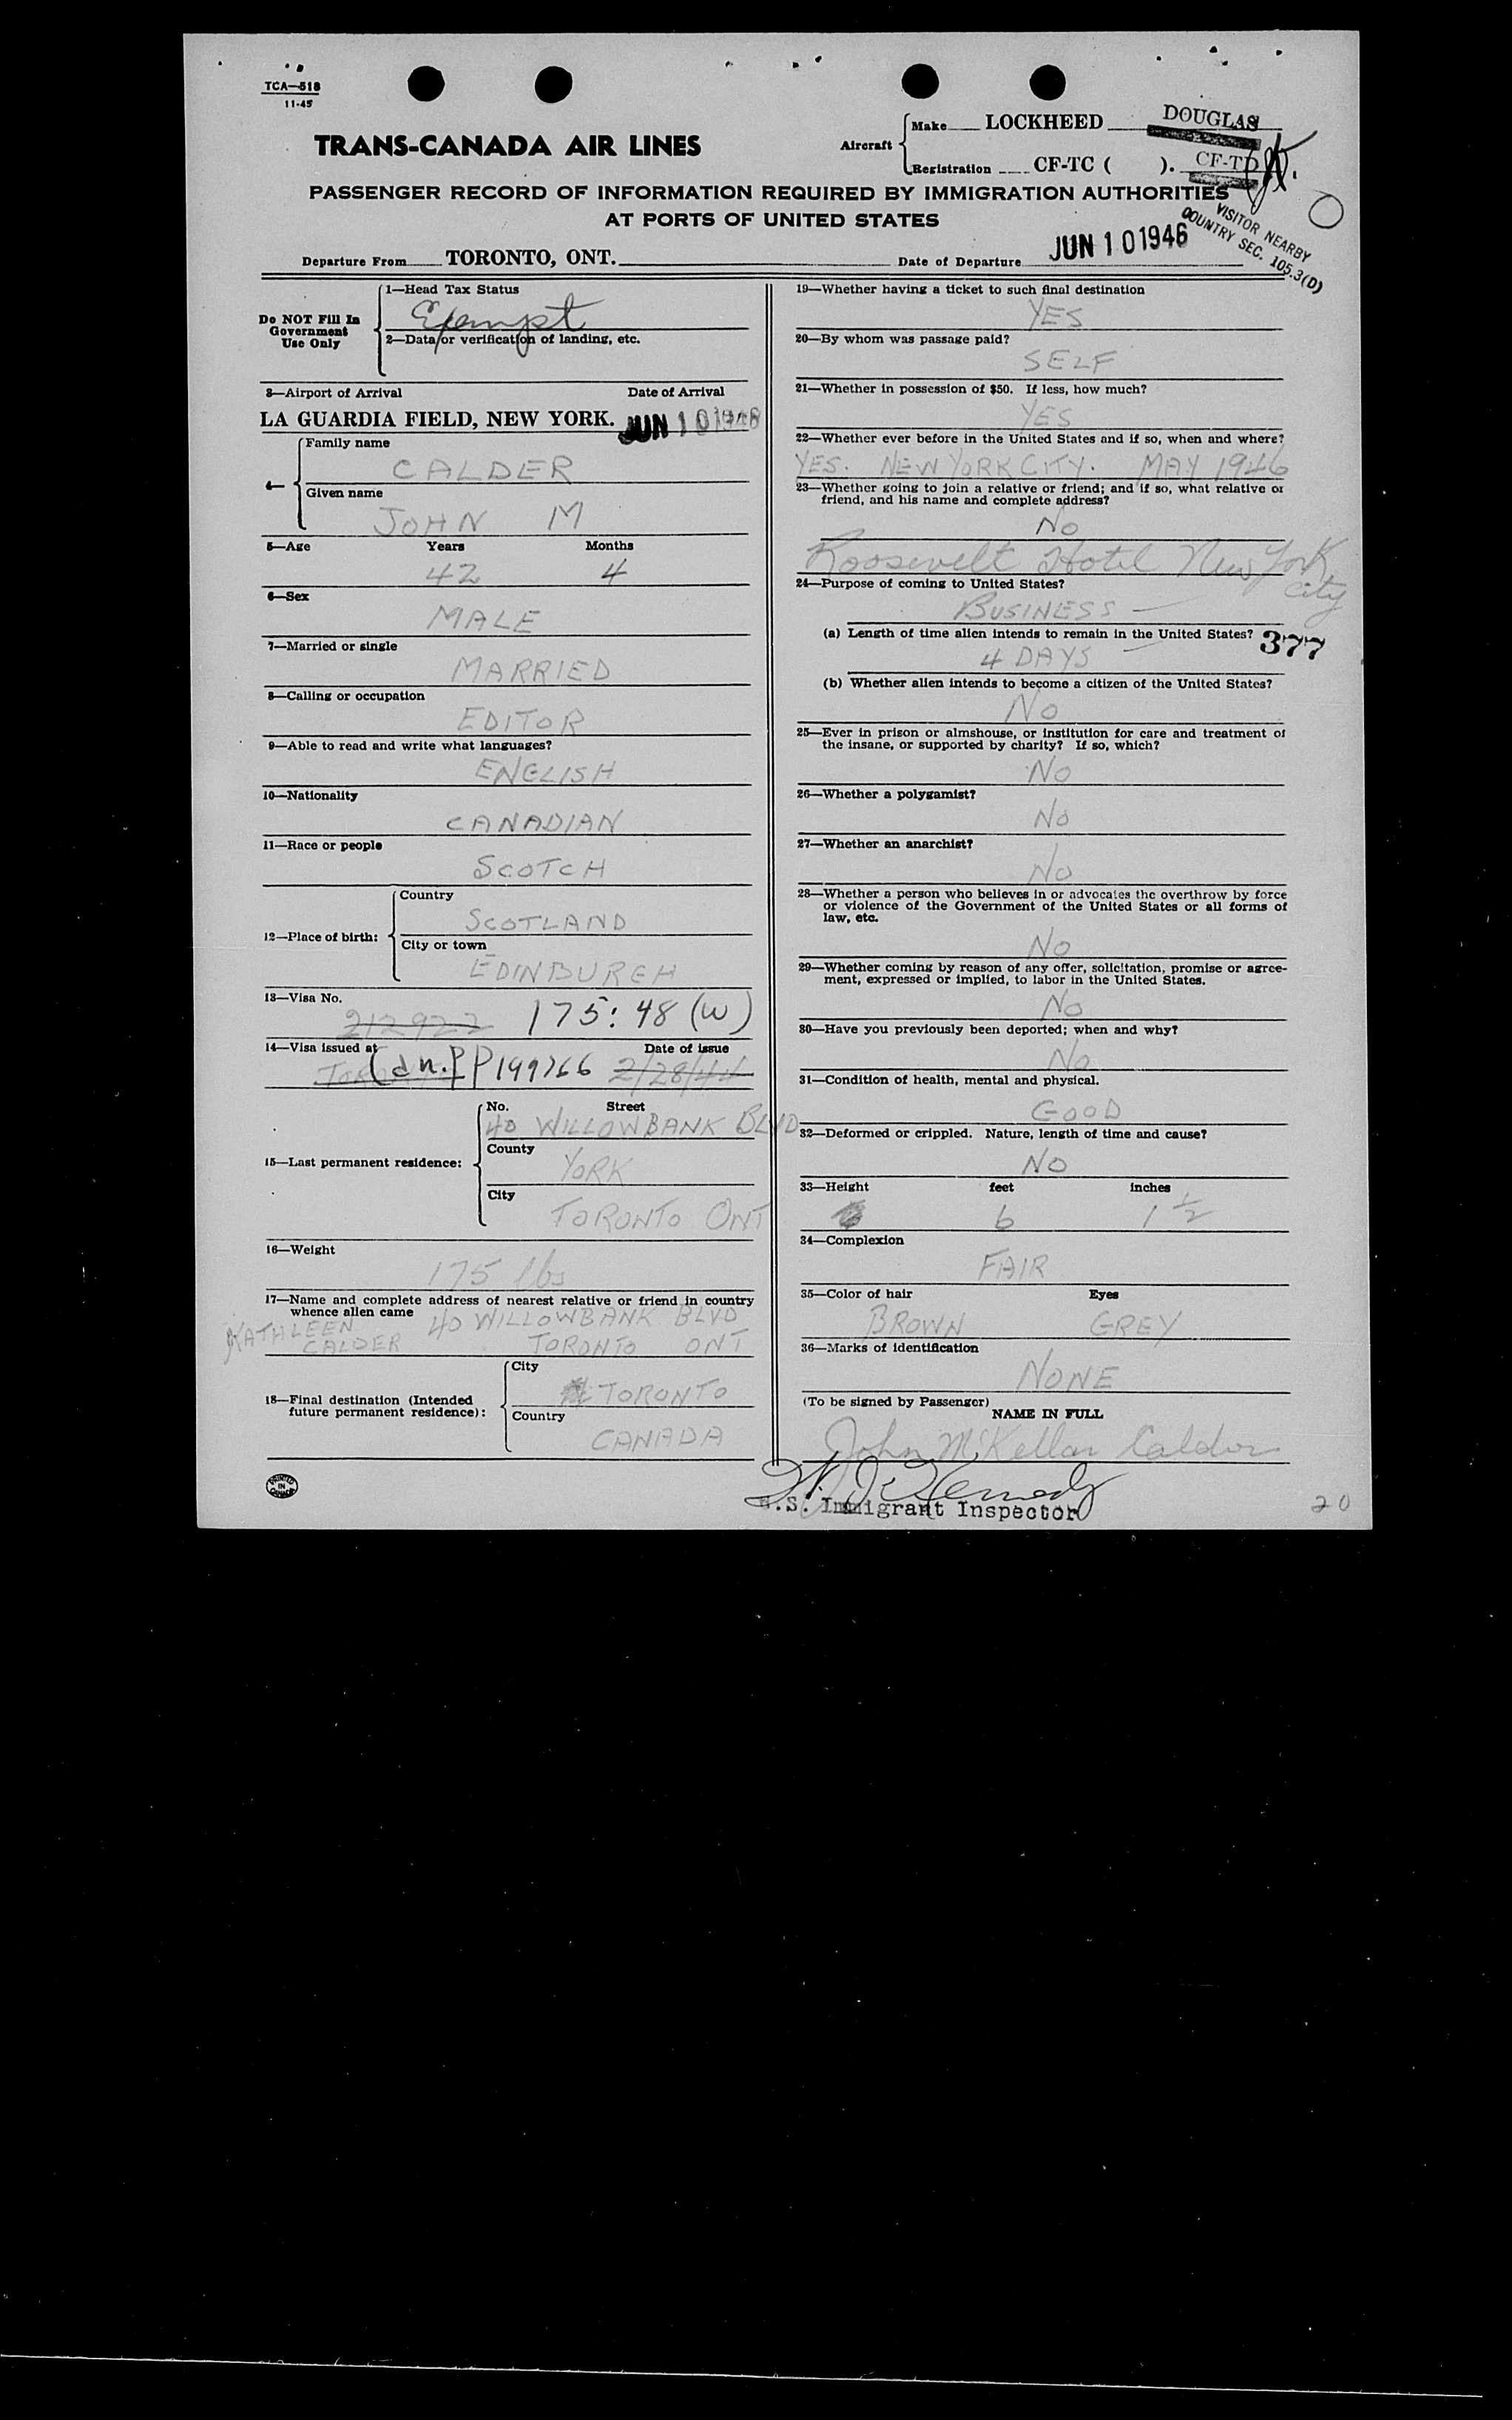 TCA—518
11-45
TRANS-CANADA AIR LINES
Aircraft
Make LOCKHEED DOUGLAS
Registration CF-TC ( ). CF-TD
PASSENGER RECORD OF INFORMATION REQUIRED BY IMMIGRATION AUTHORITIES
AT PORTS OF UNITED STATES
VISITOR NEARBY
COUNTRY SEC. 105.3(D)
Departure From TORONTO, ONT. Date of Departure JUN 10 1946
Do NOT Fill In
Government
Use Only
1—Head Tax Status
Exempt
2—Data or verification of landing, etc.
3—Airport of Arrival Date of Arrival
LA GUARDIA FIELD, NEW YORK. JUN 10 1946
4—
Family name
CALDER
Given name
JOHN M
5—Age Years Months
42 4
6—Sex
MALE
7—Married or single
MARRIED
8—Calling or occupation
EDITOR
9—Able to read and write what languages?
ENGLISH
10—Nationality
CANADIAN
11—Race or people
SCOTCH
12—Place of birth:
Country
SCOTLAND
City or town
EDINBURGH
13—Visa No.
212922 175:48 (W)
14—Visa issued at Date of issue
Cdn. PP 199766 2/28/44
15—Last permanent residence:
No. Street
40 WILLOWBANK BLVD
County
YORK
City
TORONTO ONT
16—Weight
175 lbs
17—Name and complete address of nearest relative or friend in country
whence alien came
KATHLEEN 40 WILLOWBANK BLVD
CALDER TORONTO ONT
18—Final destination (Intended
future permanent residence):
City
TORONTO
Country
CANADA
PRINTED
IN
CANADA
19—Whether having a ticket to such final destination
YES
20—By whom was passage paid?
SELF
21—Whether in possession of $50. If less, how much?
YES
22—Whether ever before in the United States and if so, when and where?
YES. NEW YORK CITY. MAY 1946
23—Whether going to join a relative or friend; and if so, what relative or
friend, and his name and complete address?
No
Roosevelt Hotel New York
City
24—Purpose of coming to United States?
BUSINESS —
(a) Length of time alien intends to remain in the United States? 377
4 DAYS
(b) Whether alien intends to become a citizen of the United States?
No
25—Ever in prison or almshouse, or institution for care and treatment of
the insane, or supported by charity? If so, which?
No
26—Whether a polygamist?
No
27—Whether an anarchist?
No
28—Whether a person who believes in or advocates the overthrow by force
or violence of the Government of the United States or all forms of
law, etc.
No
29—Whether coming by reason of any offer, solicitation, promise or agree-
ment, expressed or implied, to labor in the United States.
No
30—Have you previously been deported; when and why?
No
31—Condition of health, mental and physical.
GOOD
32—Deformed or crippled. Nature, length of time and cause?
NO
33—Height feet inches
6 1 1/2
34—Complexion
FAIR
35—Color of hair Eyes
BROWN GREY
36—Marks of identification
NONE
(To be signed by Passenger)
NAME IN FULL
John McKellar Calder
U.S. Immigrant Inspector
20